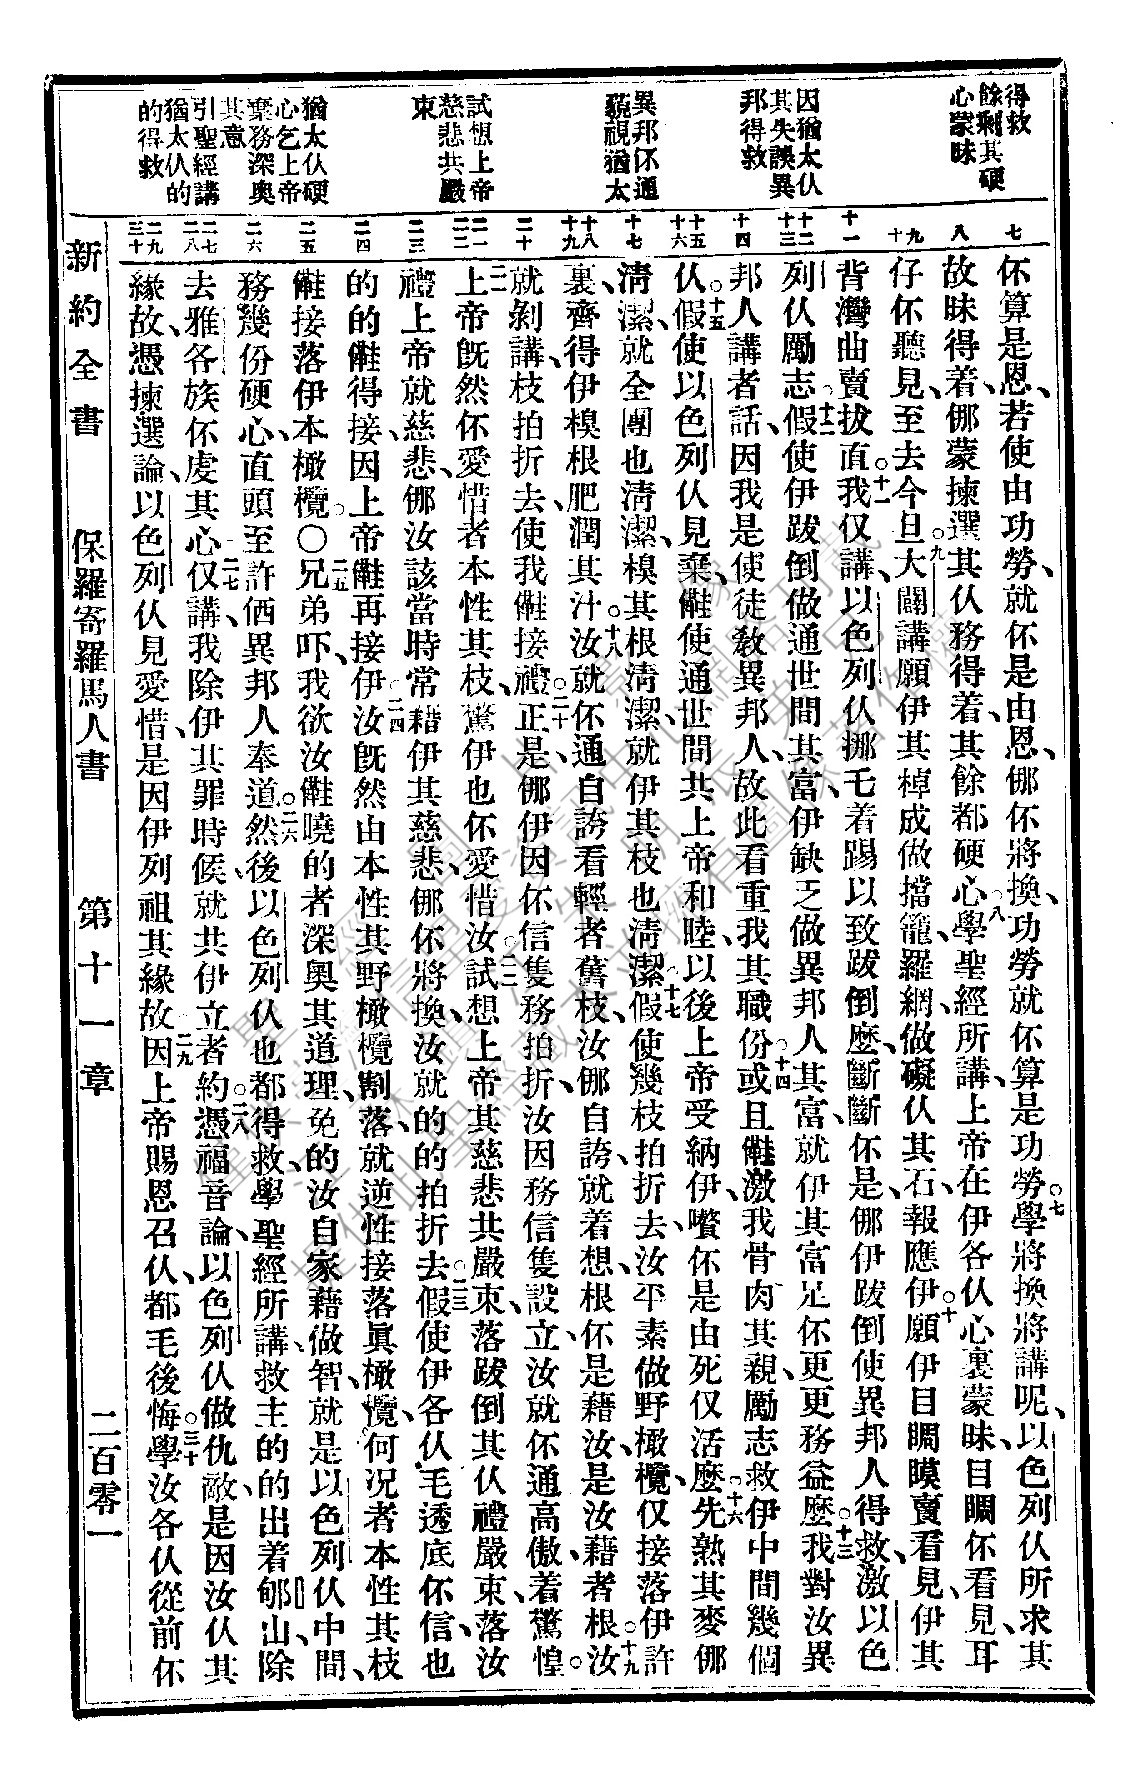 得救
餘剩其硬
心蒙昧
因猶太仸
其失誤異
邦得救
異邦伓通
藐視猶太
試想上帝
慈悲共嚴
束
猶太仸硬
心乞上帝
棄務深奧
其意
引聖經講
猶太仸的
的得救
七
八
九
十
十一
十二
十三
十四
十五
十六
十七
十八
十九
二十
二一
二二
二三
二四
二五
二六
二七
二八
二九
三十
伓算是恩、若使由功勞、就伓是由恩、倻伓將換、功勞就伓算是功勞。七學將換將講呢、以色列仸所求其
故昧得着、倻蒙揀選其仸務得着、其餘都硬心。八學聖經所講、上帝在伊各仸心裏蒙昧、目睭伓看見、耳
仔伓聽見、至去今旦。九大闢講、願伊其棹成做擋籠、羅網、做礙仸其石、報應伊。十願伊目睭瞙賣看見、伊其
背灣曲賣拔直。十一我仅講、以色列仸挪毛着踢以致跋倒麽、斷斷伓是、倻伊跋倒使異邦人得救、激以色
列仸勵志。十二假使伊跋倒做通世間其富、伊缺乏做異邦人其富、就伊其富足伓更更務益麽。十三我對汝異
邦人講者話、因我是使徒教異邦人、故此看重我其職份。十四或且㑚激我骨肉其親勵志、救伊中間幾個
仸。十五假使以色列仸見棄、㑚使通世間共上帝和睦、以後上帝受納伊、嚽伓是由死仅活麽。十六先熟其麥倻
淸潔、就全團也淸潔、模其根淸潔、就伊其枝也淸潔。十七假使幾枝拍折去、汝平素做野橄欖、仅接落伊許
裏、齊得伊模根肥潤其汁。十八汝就伓通自誇看輕者舊枝、汝倻自誇、就着想、根伓是藉汝、是汝藉者根。十九汝
就剝講、枝拍折去、使我㑚接。二十禮正是、倻伊因伓信隻務拍折、汝因務信隻設立、汝就伓通高傲、着驚惶。
二一上帝旣然伓愛惜者本性其枝、驚伊也伓愛惜汝。二二試想上帝其慈悲共嚴束、落跋倒其仸禮嚴束、落汝
禮上帝就慈悲、倻汝該當時常藉伊其慈悲、倻伓將換、汝就的的拍折去。二三假使伊各仸毛透底伓信、也
的的㑚得接、因上帝㑚再接伊。二四汝旣然由本性其野橄欖割落、就逆性接落眞橄欖、何況者本性其枝、
㑚接落伊本橄欖。〇二五兄弟吓、我欲汝㑚曉的者深奧其道理、免的汝自家藉做智、就是以色列仸中間、
務幾份硬心、直頭至許価異邦人奉道。二六然後以色列仸也都得救、學聖經所講、救主的的出着郇山、除
去雅各族伓虔其心。二七仅講、我除伊其罪時候、就共伊立者約。二八憑福音論、以色列仸做仇敵、是因汝仸其
緣故、憑揀選論、以色列仸見愛惜、是因伊列祖其緣故。二九因上帝賜恩召仸、都毛後悔。三十學汝各仸從前伓
新約全書
保羅寄羅馬人書
第十一章
二百零一